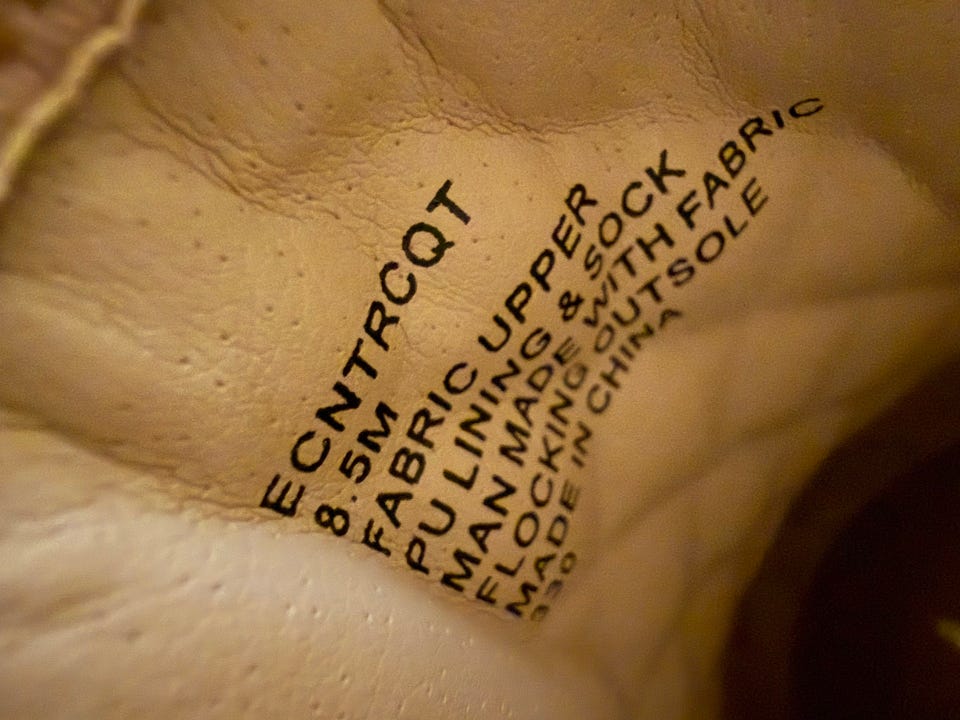 ECNTRCQT
8.5M
FABRIC UPPER
PU LINING & SOCK
MAN MADE WITH FABRIC
FLOCKING OUTSOLE
MADE IN CHINA